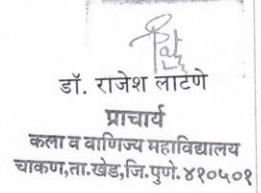 डॉ. राजेश लाटणे
प्राचार्य
कला व वाणिज्य महाविद्यालय
चाकण,ता.खेड,जि.पुणे. ४१०५०१